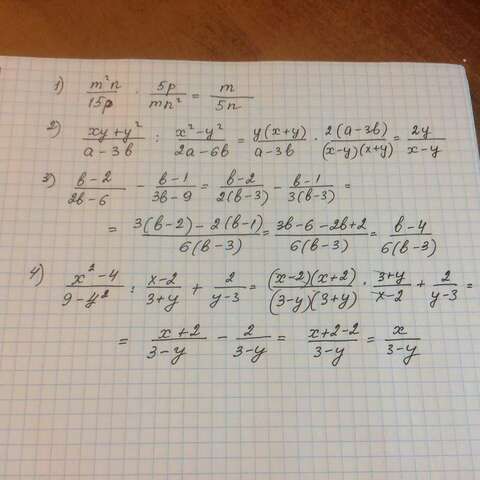 1) m²n/15p · 5p/mn² = m/5n
2) xy+y²/a-3b : x²-y²/2a-6b = y(x+y)/a-3b · 2(a-3b)/(x-y)(x+y) = 2y/x-y
3) b-2/2b-6 - b-1/3b-9 = b-2/2(b-3) - b-1/3(b-3) =
= 3(b-2)-2(b-1)/6(b-3) = 3b-6-2b+2/6(b-3) = b-4/6(b-3)
4) x²-4/9-y² : x-2/3+y + 2/y-3 = (x-2)(x+2)/(3-y)(3+y) · 3+y/x-2 + 2/y-3 =
= x+2/3-y - 2/3-y = x+2-2/3-y = x/3-y